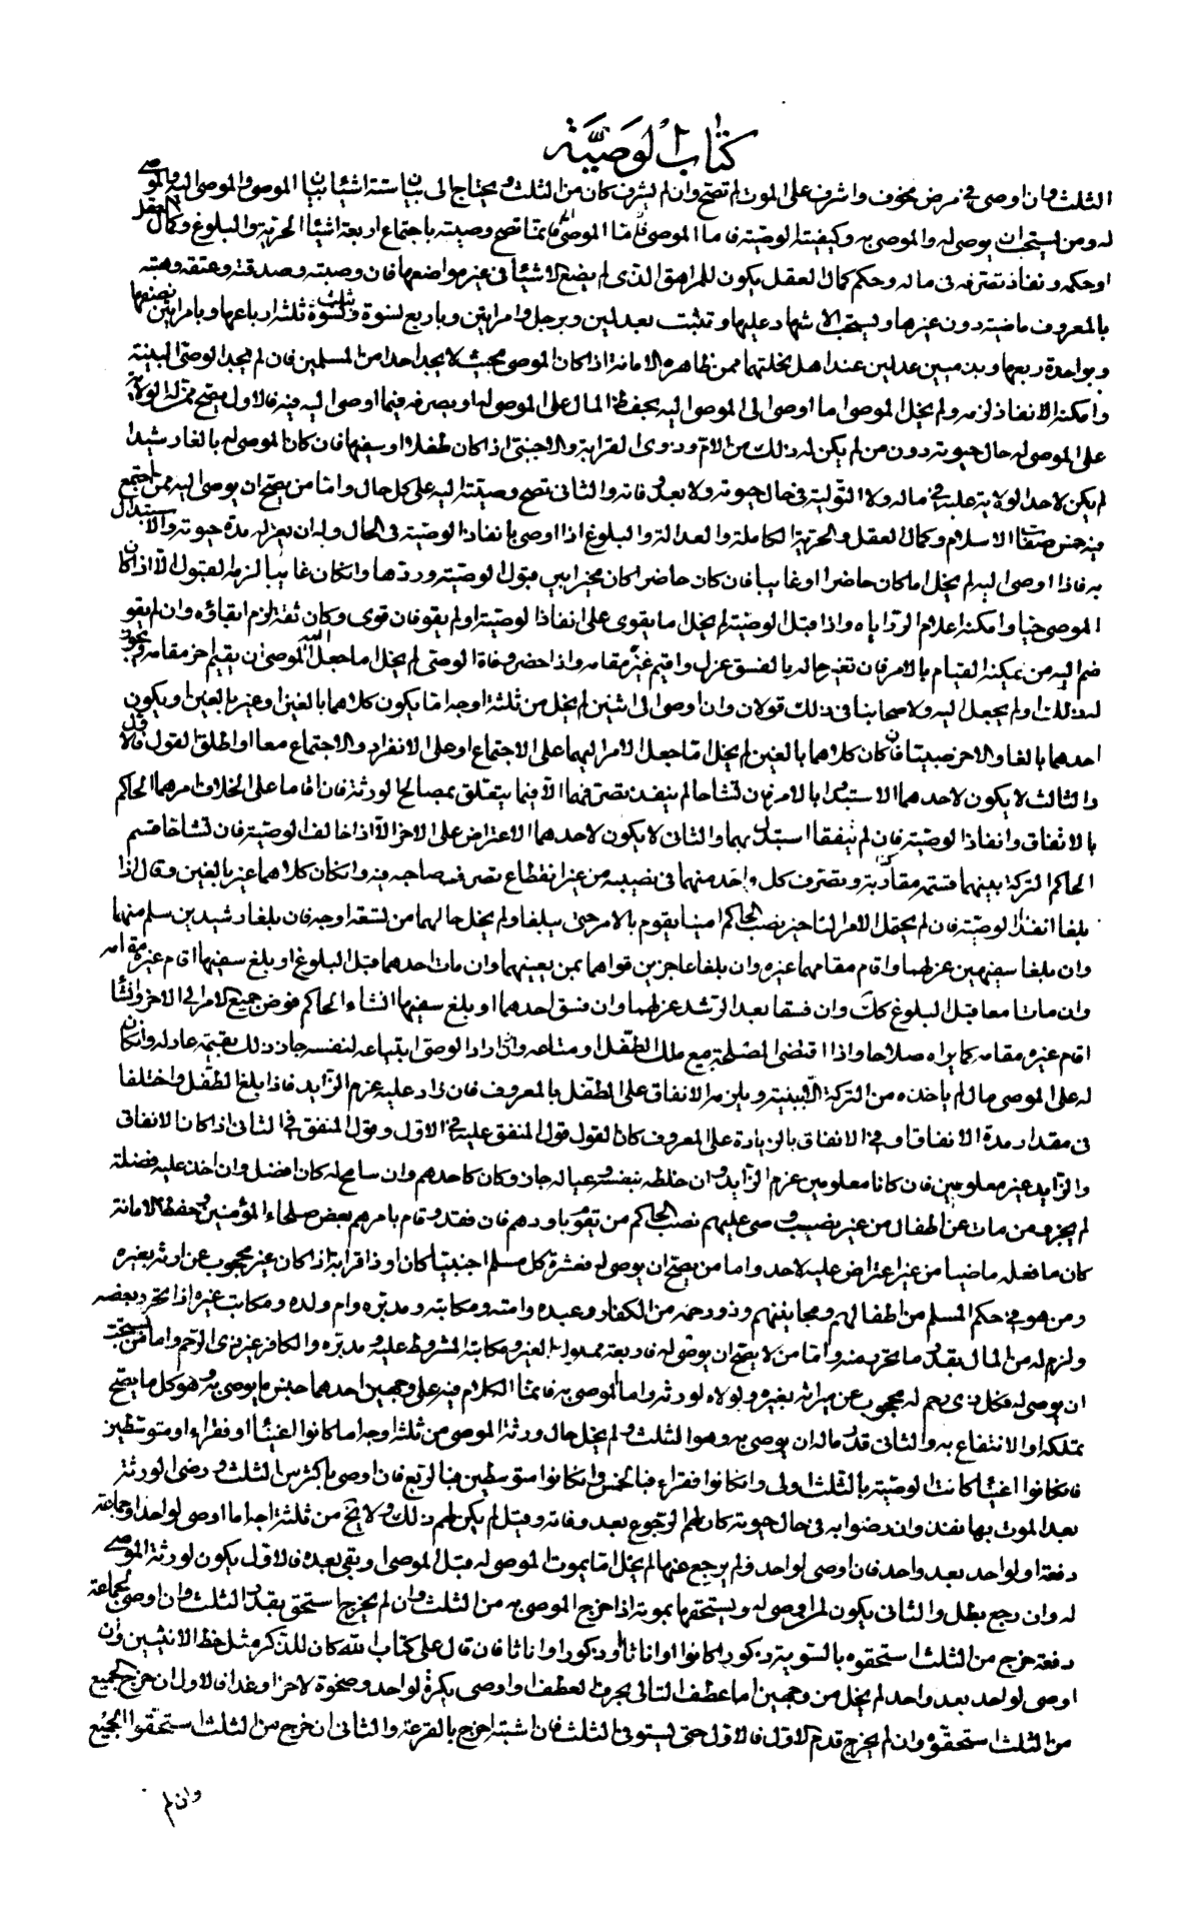 كتاب الوصية
الثلث وان اوصى فى مرض مخوف واشرف على الموت لم تصح وان لم يشرف كان من الثلث ويحتاج الى بيان ستة اشياء بيان الموصى والموصى اليه والموصى
له ومن يستحب ان يوصى له والموصى به وكيفية الوصية فاما الموصى فانما تصح وصيته باجتماع اربعة اشياء الحرية والبلوغ وكمال العقل
او حكمه ونفاذ تصرفه فى ماله وحكم كمال العقل يكون للمراهق الذى لم يضع الاشياء فى غير مواضعها فان وصيته وصدقته وعتقه وهبته
بالمعروف ماضية دون غيرها ويستحب الاشهاد عليها وتثبت بعدلين وبرجل وامراتين وباربع نسوة وبثلث نسوة ثلثة ارباعها وبامراتين نصفها
وبواحدة ربعها وبذميين عدلين عند اهل نحلتهما ممن ظاهره الامانة اذا كان الموصى بحيث لا يجد احدا من المسلمين فان لم يجد الوصى البينة
وامكنه الانفاذ لزمه ولم يخل الموصى اما اوصى الى الموصى اليه بحفظ المال على الموصى له او بصرفه فيما اوصى اليه فيه فالاول يصح ممن له الولاية
على الموصى له حال حيوته دون من لم يكن له ذلك من الام وذوى القرابة والاجنبى اذا كان طفلا او سفيها فان كان الموصى له بالغا رشيدا
لم يكن لاحد الولاية عليه فى ماله ولا التولية فى حال حيوته ولا بعد وفاته والثانى تصح وصيته اليه على كل حال واما من يصح ان يوصى اليه ممن اجتمع
فيه خمس صفات الاسلام وكمال العقل والحرية الكاملة والعدالة والبلوغ اذا اوصى بانفاذ الوصية فى الحال وله ان يعزله مدة حيوته والاستبدال
به فاذا اوصى اليه لم يخل اما كان حاضرا او غايبا فان كان حاضرا كان مخيرا بين قبول الوصية وردها وان كان غايبا لزمه القبول الا اذا كان
الموصى حيا وامكنه اعلام الرد اياه واذا قبل الوصية لم يخل اما يقوى على انفاذ الوصية او لم يقو فان قوى وكان ثقة لزم ابقاؤه وان لم يقو
ضم اليه من يمكنه القيام بالامر فان تغير حاله بالفسق عزل واقيم غيره مقامه واذا حضر وفاة الوصى لم يخل اما جعل اليه الموصى ان يقيم اخر مقامه ويجوز
له ذلك او لم يجعل اليه ولاصحابنا فى ذلك قولان وان اوصى الى اثنين لم يخل من ثلثة اوجه اما يكون كلاهما بالغين او غير بالغين او يكون
احدهما بالغا والاخر صبيا فان كان كلاهما بالغين لم يخل اما جعل الامر اليهما على الاجتماع او على الانفراد والاجتماع معا او اطلق القول فالاول
والثالث لا يكون لاحدهما الاستبداد بالامر فان تشاحا لم ينفذ تصرفهما الا فيما يتعلق بمصالح الورثة فان اقاما على الخلاف امرهما الحاكم
بالاتفاق وانفاذ الوصية فان لم يتفقا استبدل بهما والثانى لا يكون لاحدهما الاعتراض على الاخر الا اذا خالف الوصية فان تشاحا قسم
الحاكم التركة بينهما قسمة مقاربة وتصرف كل واحد منهما فى نصيبه من غير انقطاع تصرف صاحبه فيه وان كان كلاهما غير بالغين وقال اذا
بلغا انفذا الوصية فان لم يحتمل الامر التاخير نصب الحاكم امينا يقوم بالامر حتى يبلغا ولم يخل حالهما من تسعة اوجه فان بلغا رشيدين سلم منهما
وان بلغا سفيهين عزلهما واقام مقامهما غيره وان بلغا عاجزين قواهما بمن يعينهما وان مات احدهما قبل البلوغ او بلغ سفيها اقام غيره مقامه
وان ماتا معا قبل البلوغ كذلك وان فسقا بعد الرشد عزلهما وان فسق احدهما او بلغ سفيها ان شاء الحاكم فوض جميع الامر الى الاخر وان شاء
اقام غيره مقامه كما يراه صلاحا واذا اقتضى المصلحة بيع ملك الطفل او متاعه وان اراد الوصى ابتياعه لنفسه جاز ذلك بقيمة عادلة وان كان
له على الموصى مال لم ياخذه من التركة الا ببينة ويلزمه الانفاق على الطفل بالمعروف فان زاد عليه غرم الزايد فاذا بلغ الطفل واختلفا
فى مقدار مدة الانفاق او فى الانفاق بالزيادة على المعروف كان القول قول المنفق عليه فى الاول وقول المنفق فى الثانى اذا كان الانفاق
والزايد غير معلومين فان كانا معلومين غرم الزايد وان خلطه بنفسه وعياله جاز وكان كاحدهم وان سامح له كان افضل وان اخذ عليه فضلة
لم يجز ومن مات عن اطفال من غير نصب وصى عليهم نصب الحاكم من يقوم باودهم فان فقد وقام بامرهم بعض صلحاء المؤمنين وحفظ الامانة
كان ما فعله ماضيا من غير اعتراض عليه لاحد واما من يصح ان يوصى له فعشرة كل مسلم اجنبيا كان او ذا قرابة اذا كان غير محجوب عن ارثه بغيره
ومن هو فى حكم المسلم من اطفالهم ومجانينهم وذو رحمه من الكفار وعبده وامته ومكاتبه ومدبره وام ولده ومكاتب غيره اذا تحرر بعضه
ولزم له من المال بقدر ما تحرر منه واما من لا يصح ان يوصى له فاربعة مملوك الغير ومكاتبه المشروط عليه ومدبره والكافر غير ذى الرحم واما من يستحب
ان يوصى له فكل ذى رحم له محجوب عن ميراثه بغيره ولولاه لورثه واما الموصى به فانما الكلام فيه على وجهين احدهما جنس ما يوصى به وهو كل ما يصح
تملكه او الانتفاع به والثانى قدر ماله ان يوصى به وهو الثلث ولم يخل حال ورثة الموصى من ثلثة اوجه اما كانوا اغنياء او فقراء او متوسطين
فان كانوا اغنياء كانت الوصية بالثلث اولى وان كانوا فقراء فبالخمس وان كانوا متوسطين فبالربع فان اوصى باكثر من الثلث ورضى الورثة
بعد الموت بها نفذ وان رضوا به فى حال حيوته كان لهم الرجوع بعد وفاته وقيل لم يكن لهم ذلك ولا يخ من ثلثة اوجه اما اوصى لواحد او جماعة
دفعة او لواحد بعد واحد فان اوصى لواحد ولم يرجع عنها لم يخل اما يموت الموصى له قبل الموصى او بقى بعده فالاول يكون لورثة الموصى
له وان رجع بطل والثانى يكون لمن اوصى له ويستحقها بموته اذا خرج الموصى به من الثلث وان لم يخرج استحق بقدر الثلث وان اوصى لجماعة
دفعة خرج من الثلث استحقوه بالسوية ذكورا كانوا او اناثا او ذكورا واناثا فان قال على كتاب الله كان للذكر مثل حظ الانثيين وان
اوصى لواحد بعد واحد لم يخل من وجهين اما عطف الثانى بحرف العطف او اوصى بكرة لواحد وضحوة لاخر او غدا فالاول ان خرج الجميع
من الثلث استحقوه وان لم يخرج قدم الاول فالاول حتى يستوفى الثلث فان اشتبه اخرج بالقرعة والثانى ان خرج من الثلث استحقوا الجميع
وان لم